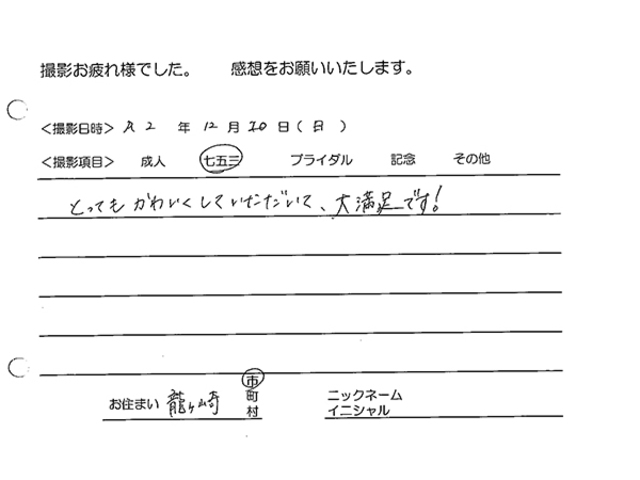 撮影お疲れ様でした。 感想をお願いいたします。
＜撮影日時＞ R2 年 12 月 20 日（日）
＜撮影項目＞ 成人 七五三 ブライダル 記念 その他
とってもかわいくしていただいて、大満足です!
お住まい 龍ヶ崎 市 町 村 ニックネーム
イニシャル